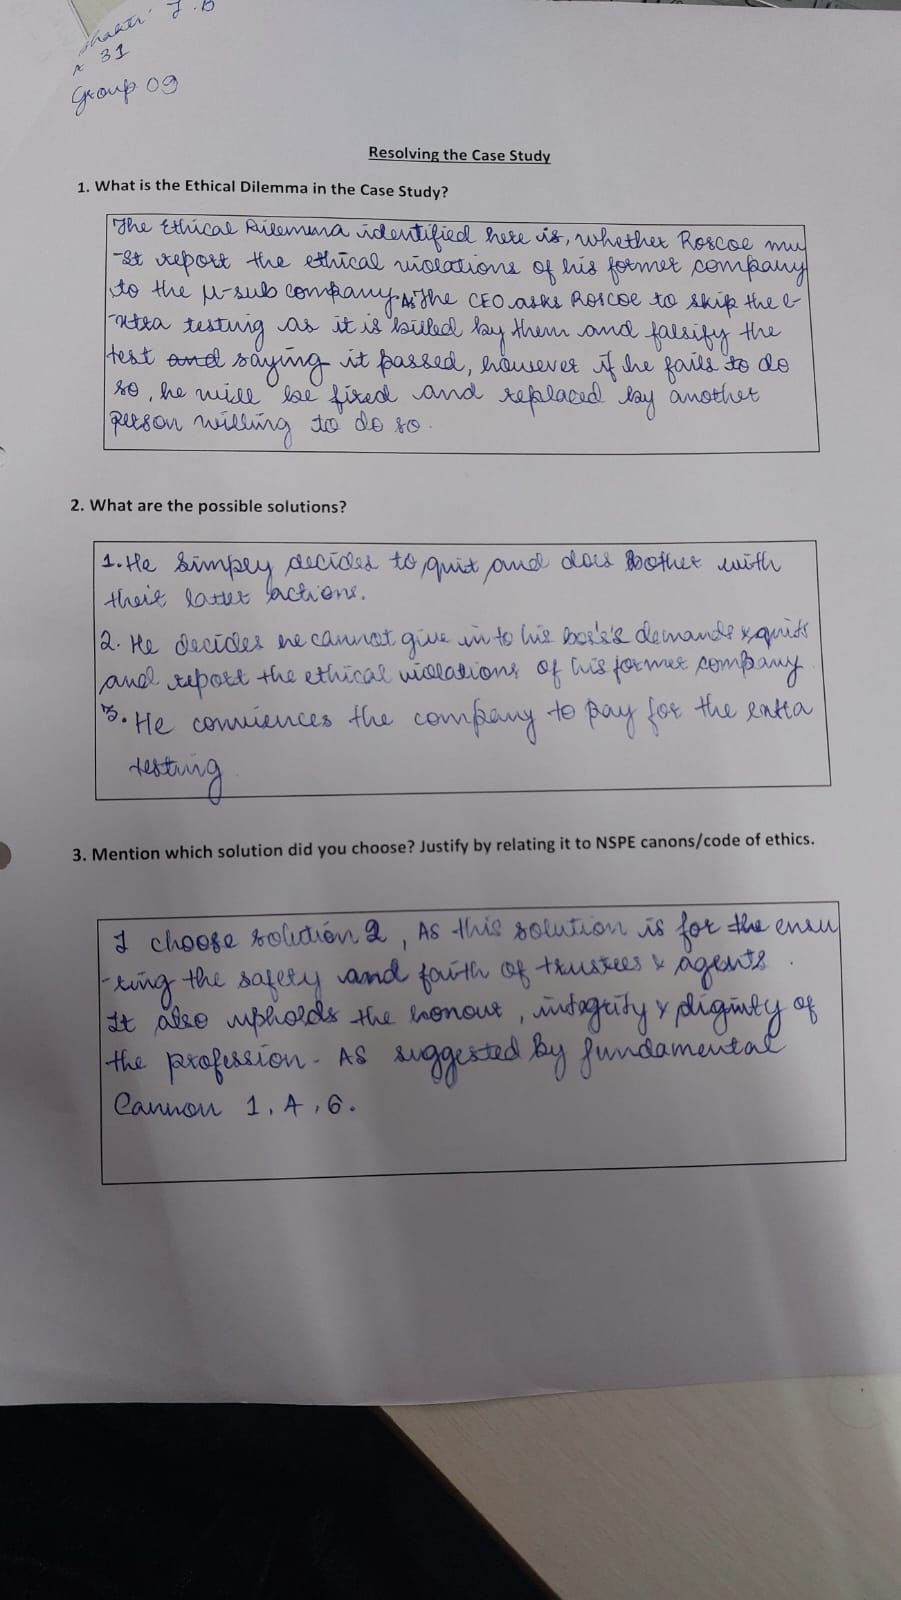 J. B
31
Group 09
Resolving the Case Study
1. What is the Ethical Dilemma in the Case Study?
The Ethical Dilemma identified here is, whether Roscoe mu
-st report the ethical violations of his former company
to the μ-sub company. As The CEO asks Roscoe to skip the e-
-xtra testing as it is billed by them and falsify the
test and saying it passed, however if he fails to do
so, he will be fired and replaced by another
person willing to do so.
2. What are the possible solutions?
1. He simpley decides to quit and does bother with
their later actions.
2. He decides he cannot give in to his boss's demands & quits
and report the ethical violations of his former company.
3. He conviences the company to pay for the extra
testing
3. Mention which solution did you choose? Justify by relating it to NSPE canons/code of ethics.
I choose solution 2, As this solution is for the ensu
-ring the safety and faith of trustees & agents.
It also upholds the honour, integrity & diginity of
the profession. As suggested by fundamental
Cannon 1, 4, 6.